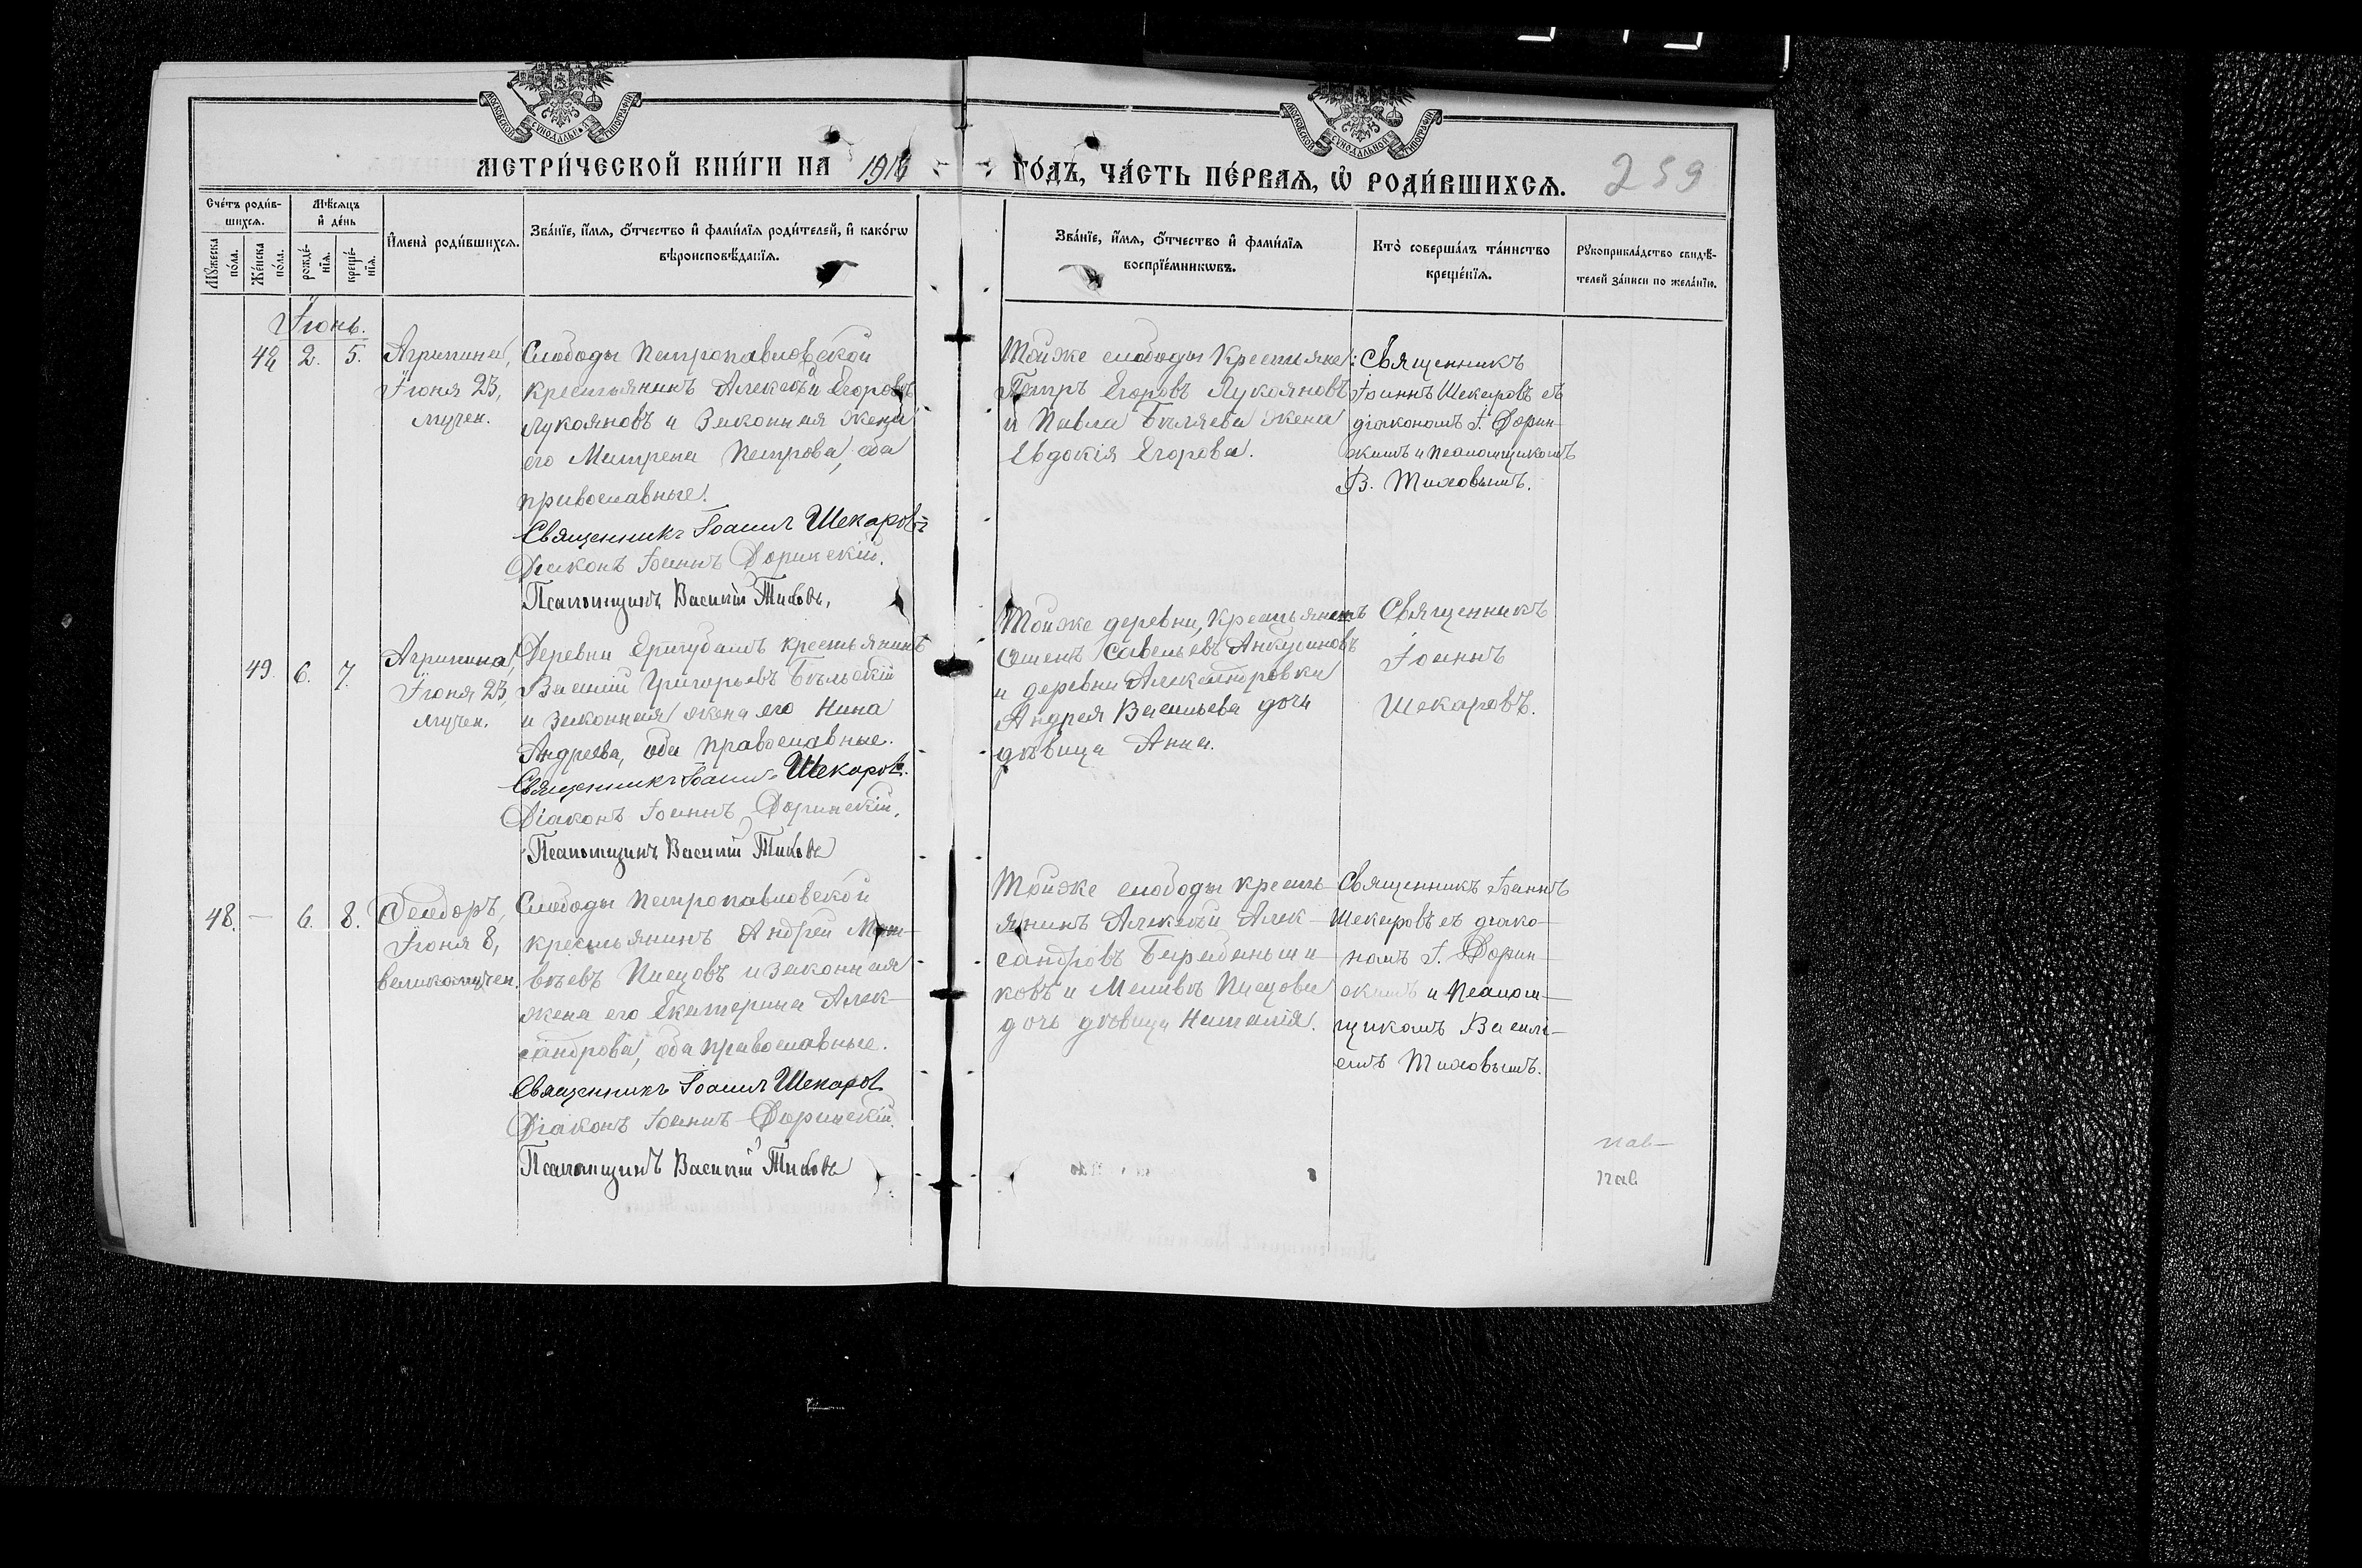 МОСКОВСКОЙ СѴНОДАЛЬНОЙ ТИПОГРАФІИ
МОСКОВСКОЙ СѴНОДАЛЬНОЙ ТИПОГРАФІИ
МЕТРИ́ЧЕСКОЙ КНИ́ГИ НА 1916
ГО́ДЪ, ЧА́СТЬ ПЕ́РВАѦ, Ѡ҆ РОДИ́ВШИХСѦ.
259
Сче́тъ роди́в-
шихсѧ.
Мѣ́сѧцъ
и҆ де́нь
Мꙋ́жеска
по́ла.
Же́нска
по́ла.
рожде́-
нїѧ.
креще́-
нїѧ.
И҆мена̀ роди́вшихсѧ.
Зва́нїе, и҆́мѧ, ѻ҆́тчество и҆ фами́лїѧ роди́телей, и҆ како́гѡ
вѣроисповѣ́данїѧ.
Зва́нїе, и҆́мѧ, ѻ҆́тчество и҆ фами́лїѧ
воспрїе́мникѡвъ.
Кто̀ соверша́лъ та́инство
креще́нїѧ.
Рꙋкоприкла́дство свидѣ́-
телей за́писи по жела́нїю.
Іюнь.
48 2. 5.
Агрипина,
Іюня 23,
мучен.
Слободы Петропавловской
крестьянинъ Алексѣй Егоровъ
Лукояновъ и законная жена
его Матрена Петрова, оба
православные.
Священникъ Іоаннъ Шекаровъ
Діаконъ Іоаннъ Доринскій.
Псаломщикъ Василій Тиховъ,
Тойже слободы крестьяне:
Петръ Егоровъ Лукояновъ
и Павла Бѣляева жена
Евдокія Егорова.
Священникъ
Іоаннъ Шекаровъ съ
діакономъ І. Дорин-
скимъ и псаломщикомъ
В. Тиховымъ.
49. 6. 7.
Агрипина,
Іюня 23,
мучен.
Деревни крестьянинъ
Василій Григорьевъ Бѣльскій
и законная жена его Нина
Андреева, оба православные.
Священникъ Іоаннъ Шекаровъ.
Діаконъ Іоаннъ Доринскій.
Псаломщикъ Василій Тиховъ
Тойже деревни, крестьянинъ
Савельевъ
и деревни Александровки
Андрея Васильева дочь
дѣвица Анна.
Священникъ
Іоаннъ
Шекаровъ.
48. — 6. 8.
Ѳеодоръ,
Іюня 8,
великомучен.
Слободы Петропавловской
крестьянинъ Андрей Мат-
вѣевъ Писцовъ и законная
жена его Екатерина Алек-
сандрова, оба православные.
Священникъ Іоаннъ Шекаровъ
Діаконъ Іоаннъ Доринскій.
Псаломщикъ Василій Тиховъ
Тойже слободы кресть-
янинъ Алексѣй Алек-
сандровъ Барабаньщи-
ковъ и Писцова
дочь дѣвица Наталія.
Священникъ Іоаннъ
Шекаровъ съ діако-
номъ І. Дорин-
скимъ и псалом-
щикомъ Василі-
емъ Тиховымъ.
пав-
пав